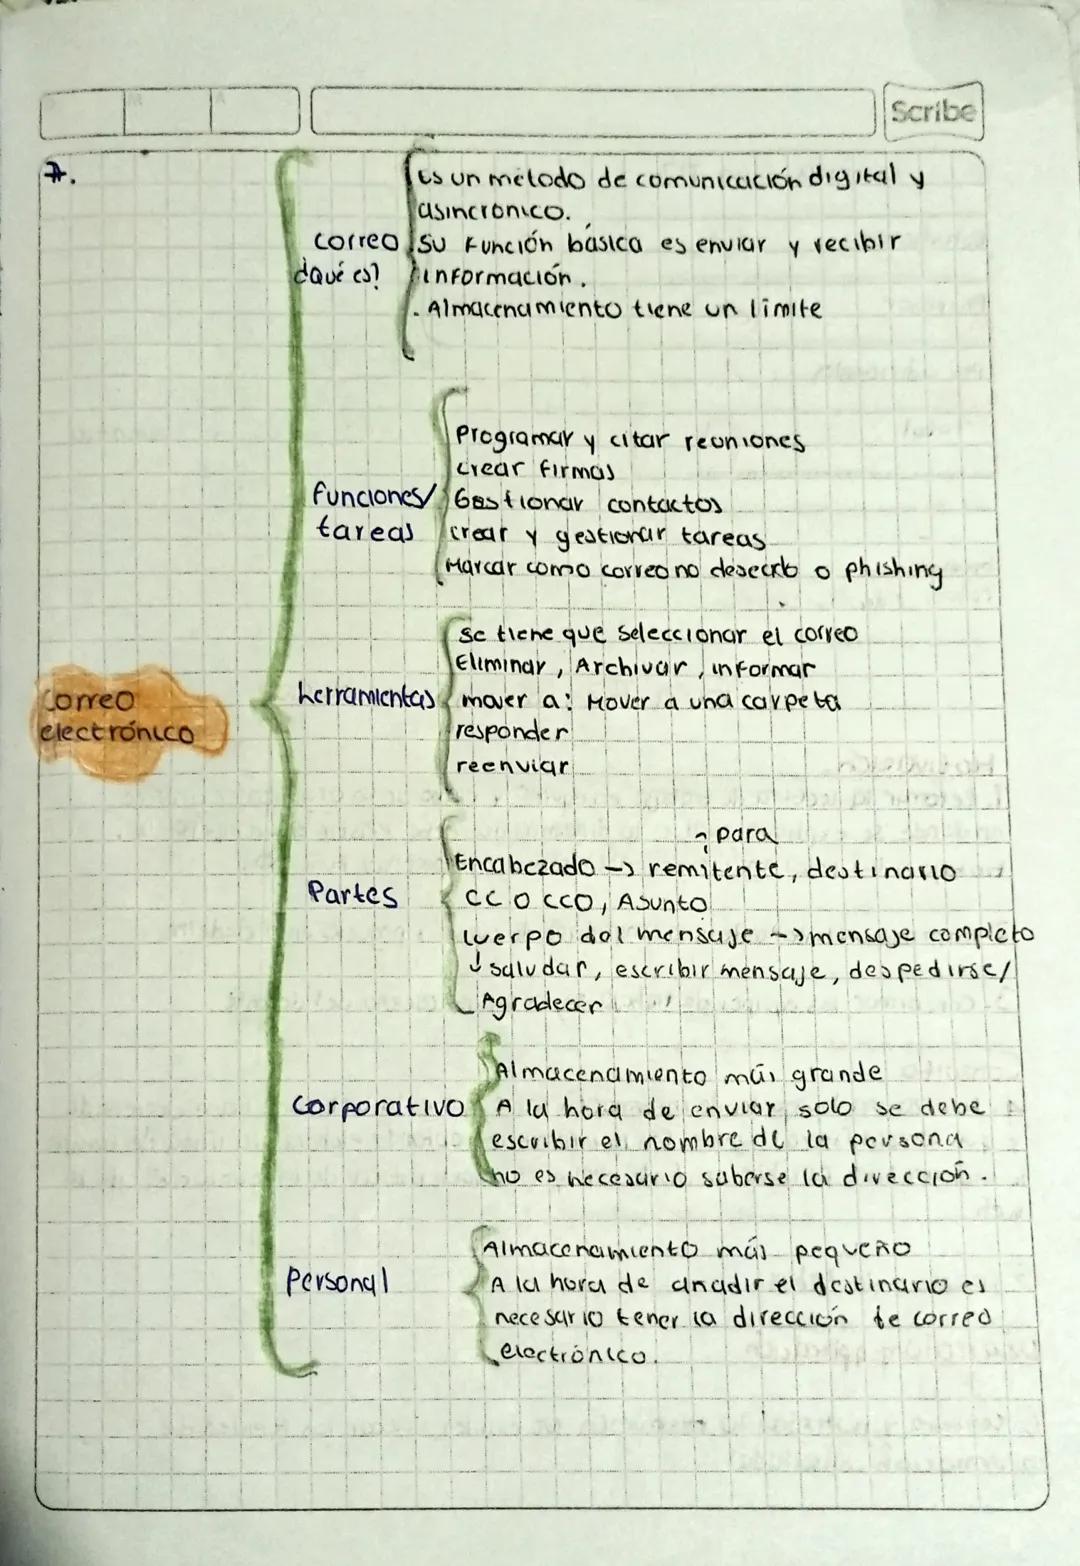 Scribe
7.
Es un método de comunicación digital y
asincronico.
correo Su función básica es enviar y recibir
¿Qué es? información.
. Almacenamiento tiene un limite
Programar y citar reuniones
crear firmas
funciones/ Gestionar contactos
tareas crear y gestionar tareas
Marcar como correo no deseado o phishing
Se tiene que seleccionar el correo
Eliminar, Archivar, informar
Correo herramientas mover a: Mover a una carpeta
electrónico responder
reenviar
para
Encabezado -> remitente, destinario
Partes CC O CCO, Asunto
Cuerpo del mensaje -> mensaje completo
↓ saludar, escribir mensaje, despedirse/
Agradecer
Almacenamiento más grande
Corporativo A la hora de enviar solo se debe
escribir el nombre de la persona
no es necesario saberse la dirección.
Almacenamiento más pequeño
Personal A la hora de anadir el destinario es
necesario tener la dirección de correo
electrónico.